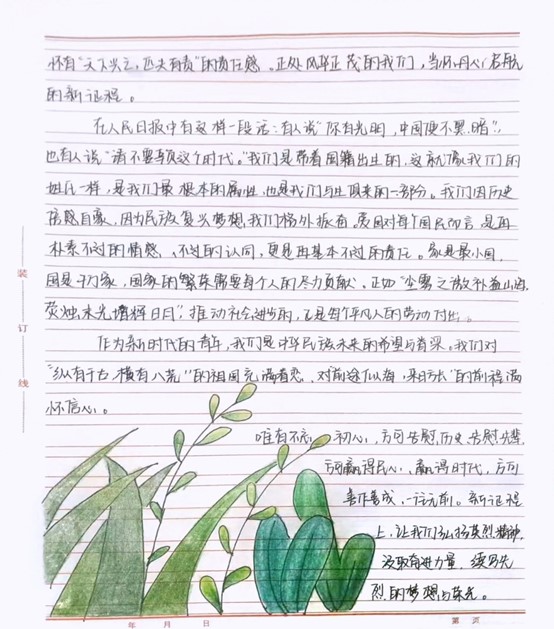 怀有“天下兴亡，匹夫有责”的责任感。正处风华正茂的我们，当以丹心启航
的新征程。
在人民日报中有这样一段话：有人说“你有光明，中国便不黑暗”，
也有人说“请不要辜负这个时代。”我们是带着国籍出生的，这就像我们的
姓氏一样，是我们最根本的属性，也是我们与生俱来的一部分。我们因历史
倍感自豪，因为民族复兴梦想，我们格外振奋。爱国对每个国民而言，是再
朴素不过的情感、不过的认同，更是再基本不过的责任。家是最小国，
国是千万家，国家的繁荣需要每个人的尽力贡献。正如“尘雾之微补益山海，
荧烛末光增辉日月”，推动社会进步的，正是每个平凡人的劳动付出。
作为新时代的青年，我们是中华民族未来的希望与脊梁。我们对
“纵有千古，横有八荒”的祖国充满眷恋、对前途似海，来日方长”的前程满
怀信心。
唯有不忘初心，方可告慰历史、告慰先辈，
方可赢得民心、赢得时代，方可
善作善成，一往无前。新征程
上，让我们弘扬英烈精神，
汲取奋进力量，续写先
烈的梦想与荣光。
装
订
线
年 月 日
第 页